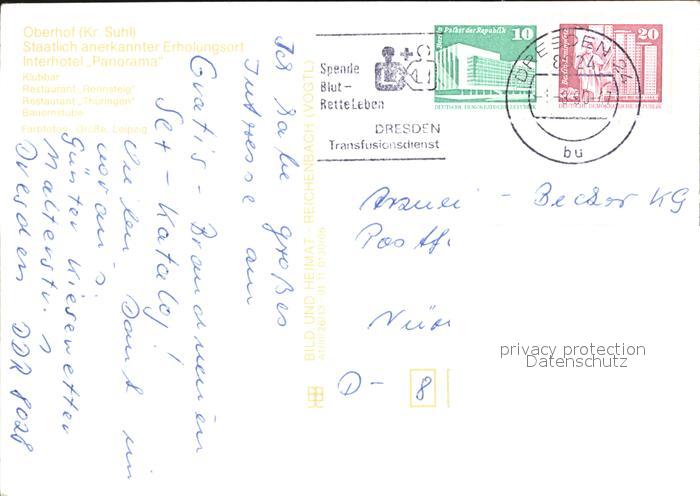 Oberhof (Kr. Suhl)
Staatlich anerkannter Erholungsort
Interhotel „Panorama"
Klubbar
Restaurant „Rennsteig"
Restaurant „Thüringen"
Bauernstube
Farbfotos: Große, Leipzig
Ich habe großes
Intresse am
Gratis - Brandneuen
Set - Katalog!
Lieben Dank im
voraus
Günter Kiesewetter
Malterstr.
Dresden DDR 8028
BILD UND HEIMAT · REICHENBACH (VOGTL)
Spende
Blut -
Rette Leben
DRESDEN
Transfusionsdienst
Palast der Republik
10
DEUTSCHE DEMOKRATISCHE REPUBLIK
20
DRESDEN 24
8024
bu
Arznei - Becker KG
Postf
Nür
D - 8
privacy protection
Datenschutz